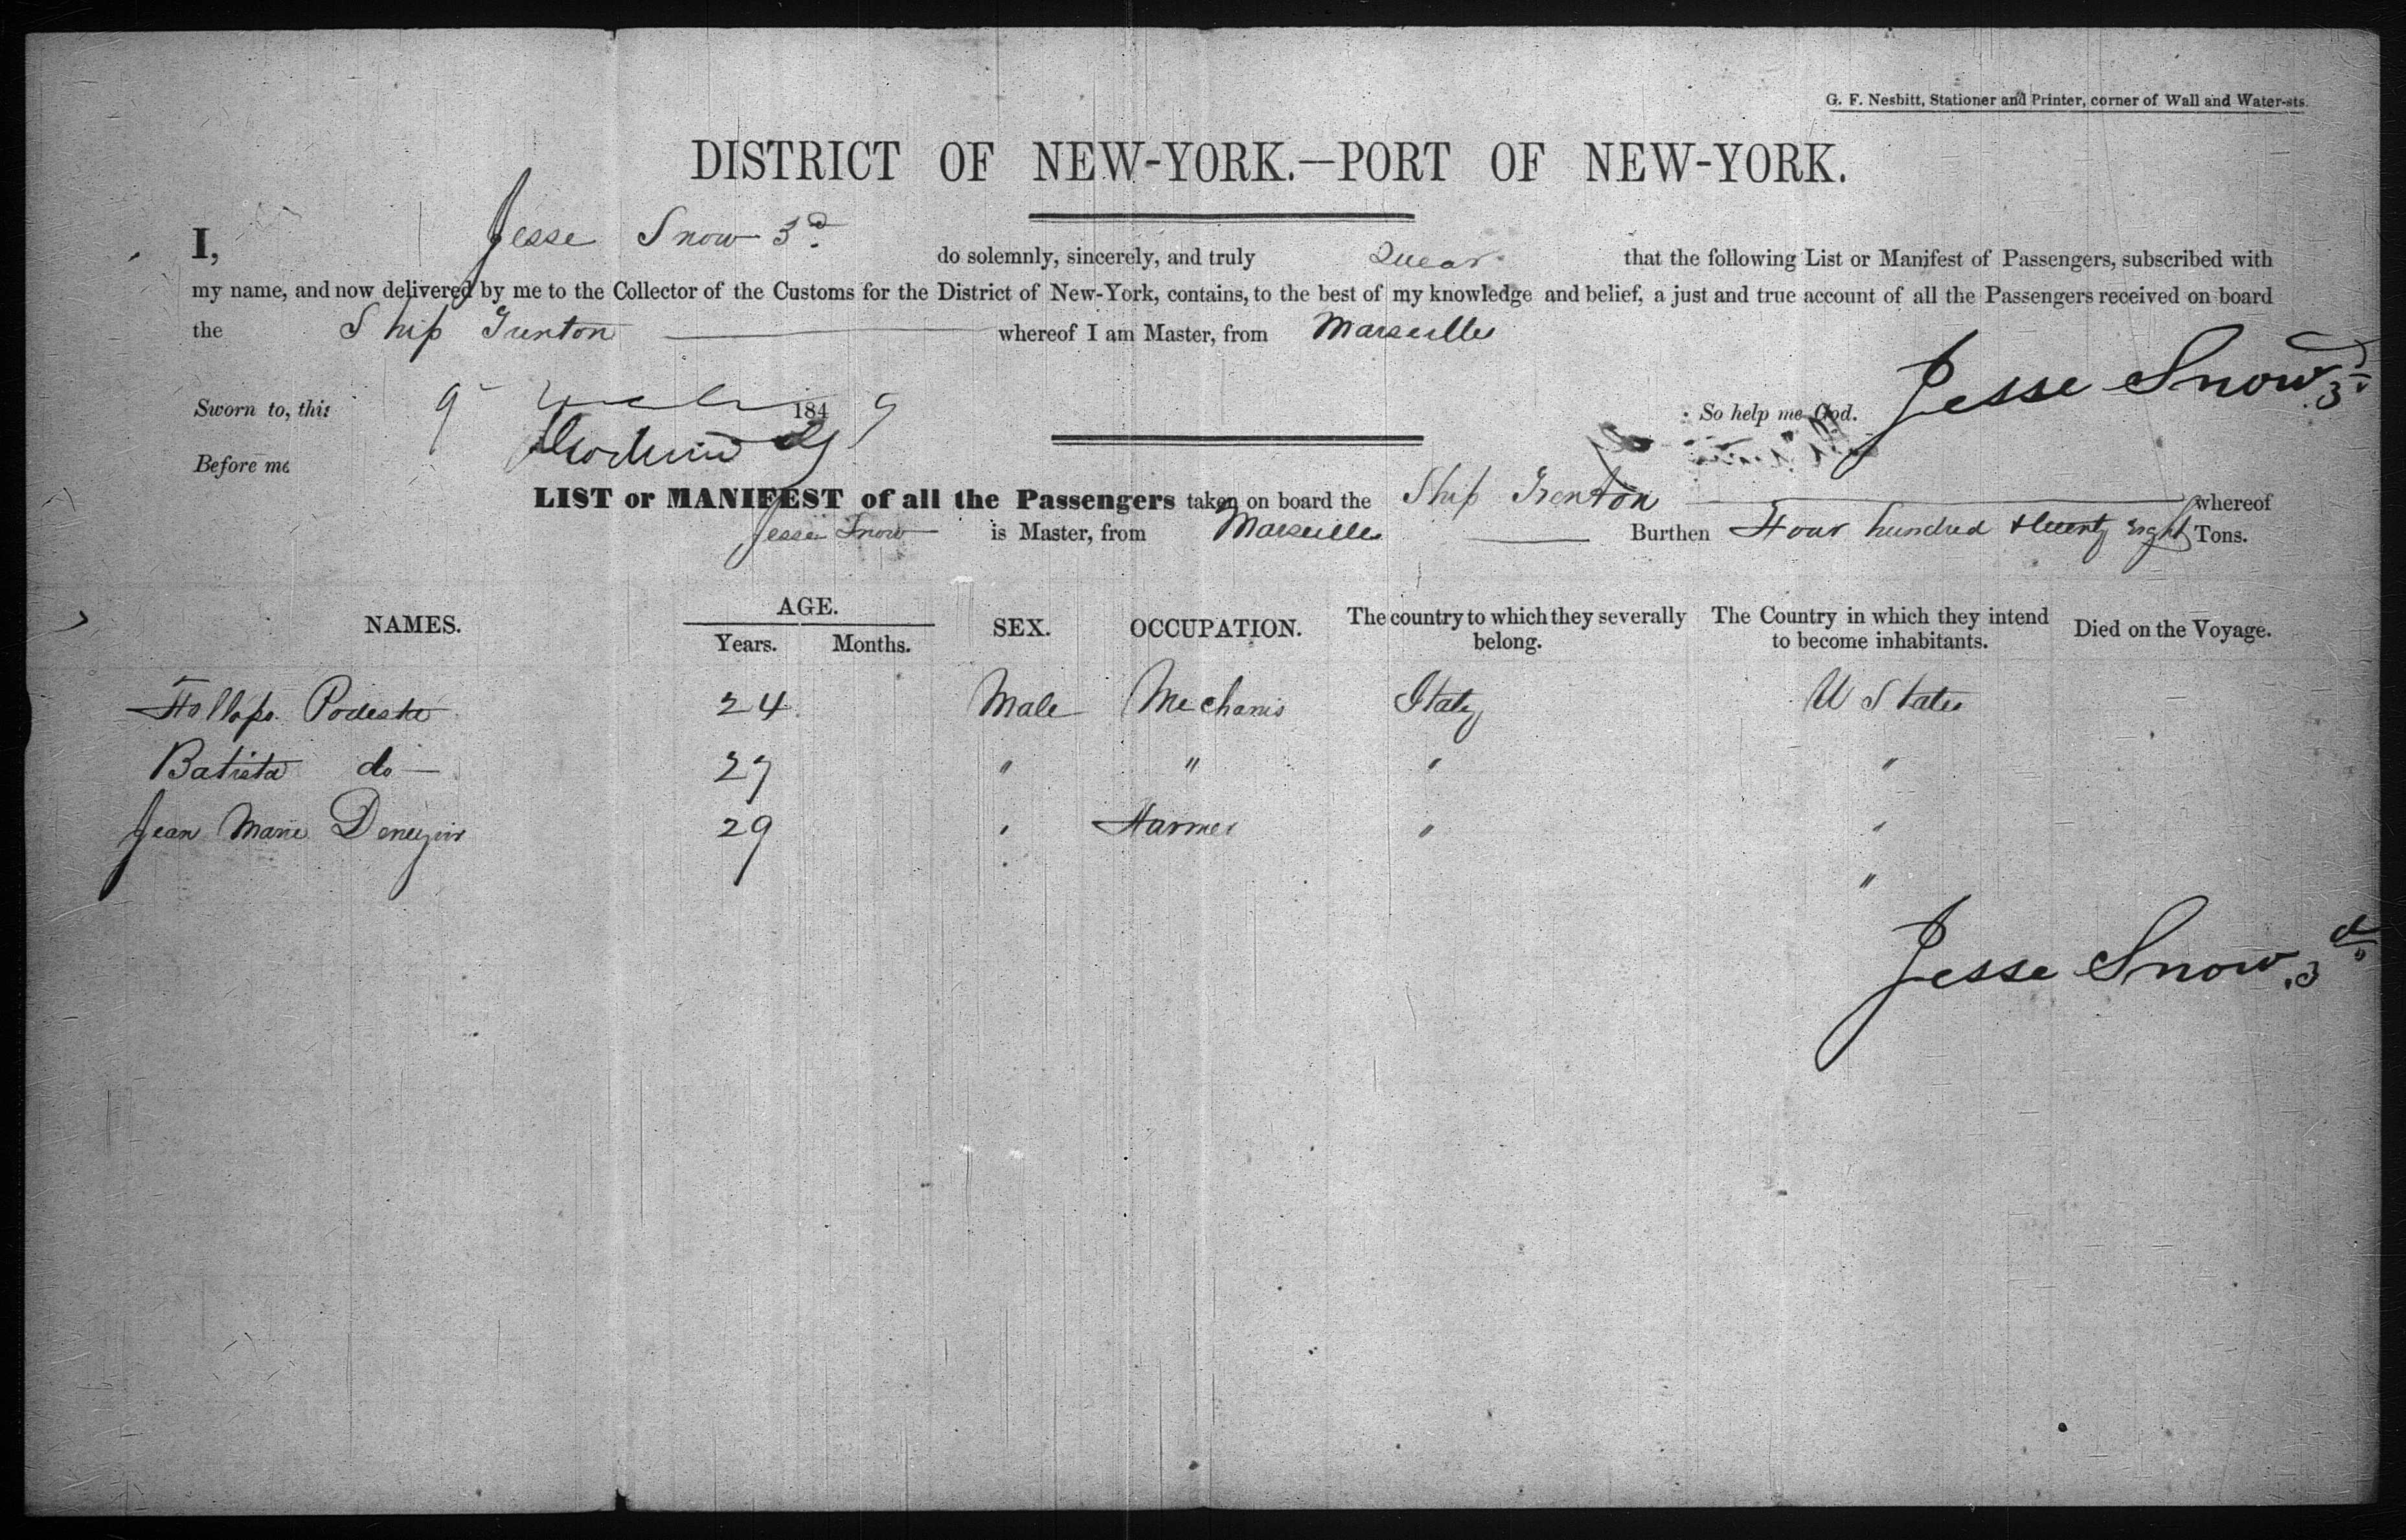 G. F. Nesbitt, Stationer and Printer, corner of Wall and Water-sts.
DISTRICT OF NEW-YORK.—PORT OF NEW-YORK.
I, Jesse Snow 3d do solemnly, sincerely, and truly that the following List or Manifest of Passengers, subscribed with
my name, and now delivered by me to the Collector of the Customs for the District of New-York, contains, to the best of my knowledge and belief, a just and true account of all the Passengers received on board
the Ship Trenton whereof I am Master, from Marseilles
Jesse Snow 3d
Sworn to, this 9 184 9 So help me God.
Before me
LIST or MANIFEST of all the Passengers taken on board the Ship Trenton whereof
Jesse Snow is Master, from Marseilles Burthen Four hundred & twenty eight Tons.
NAMES. AGE. Years. Months. SEX. OCCUPATION. The country to which they severally belong. The Country in which they intend to become inhabitants. Died on the Voyage.
Podesta 24 Male Mechanic Italy U States
Batista do — 27 " " " "
Jean Marie 29 " Farmer " "
"
Jesse Snow 3d